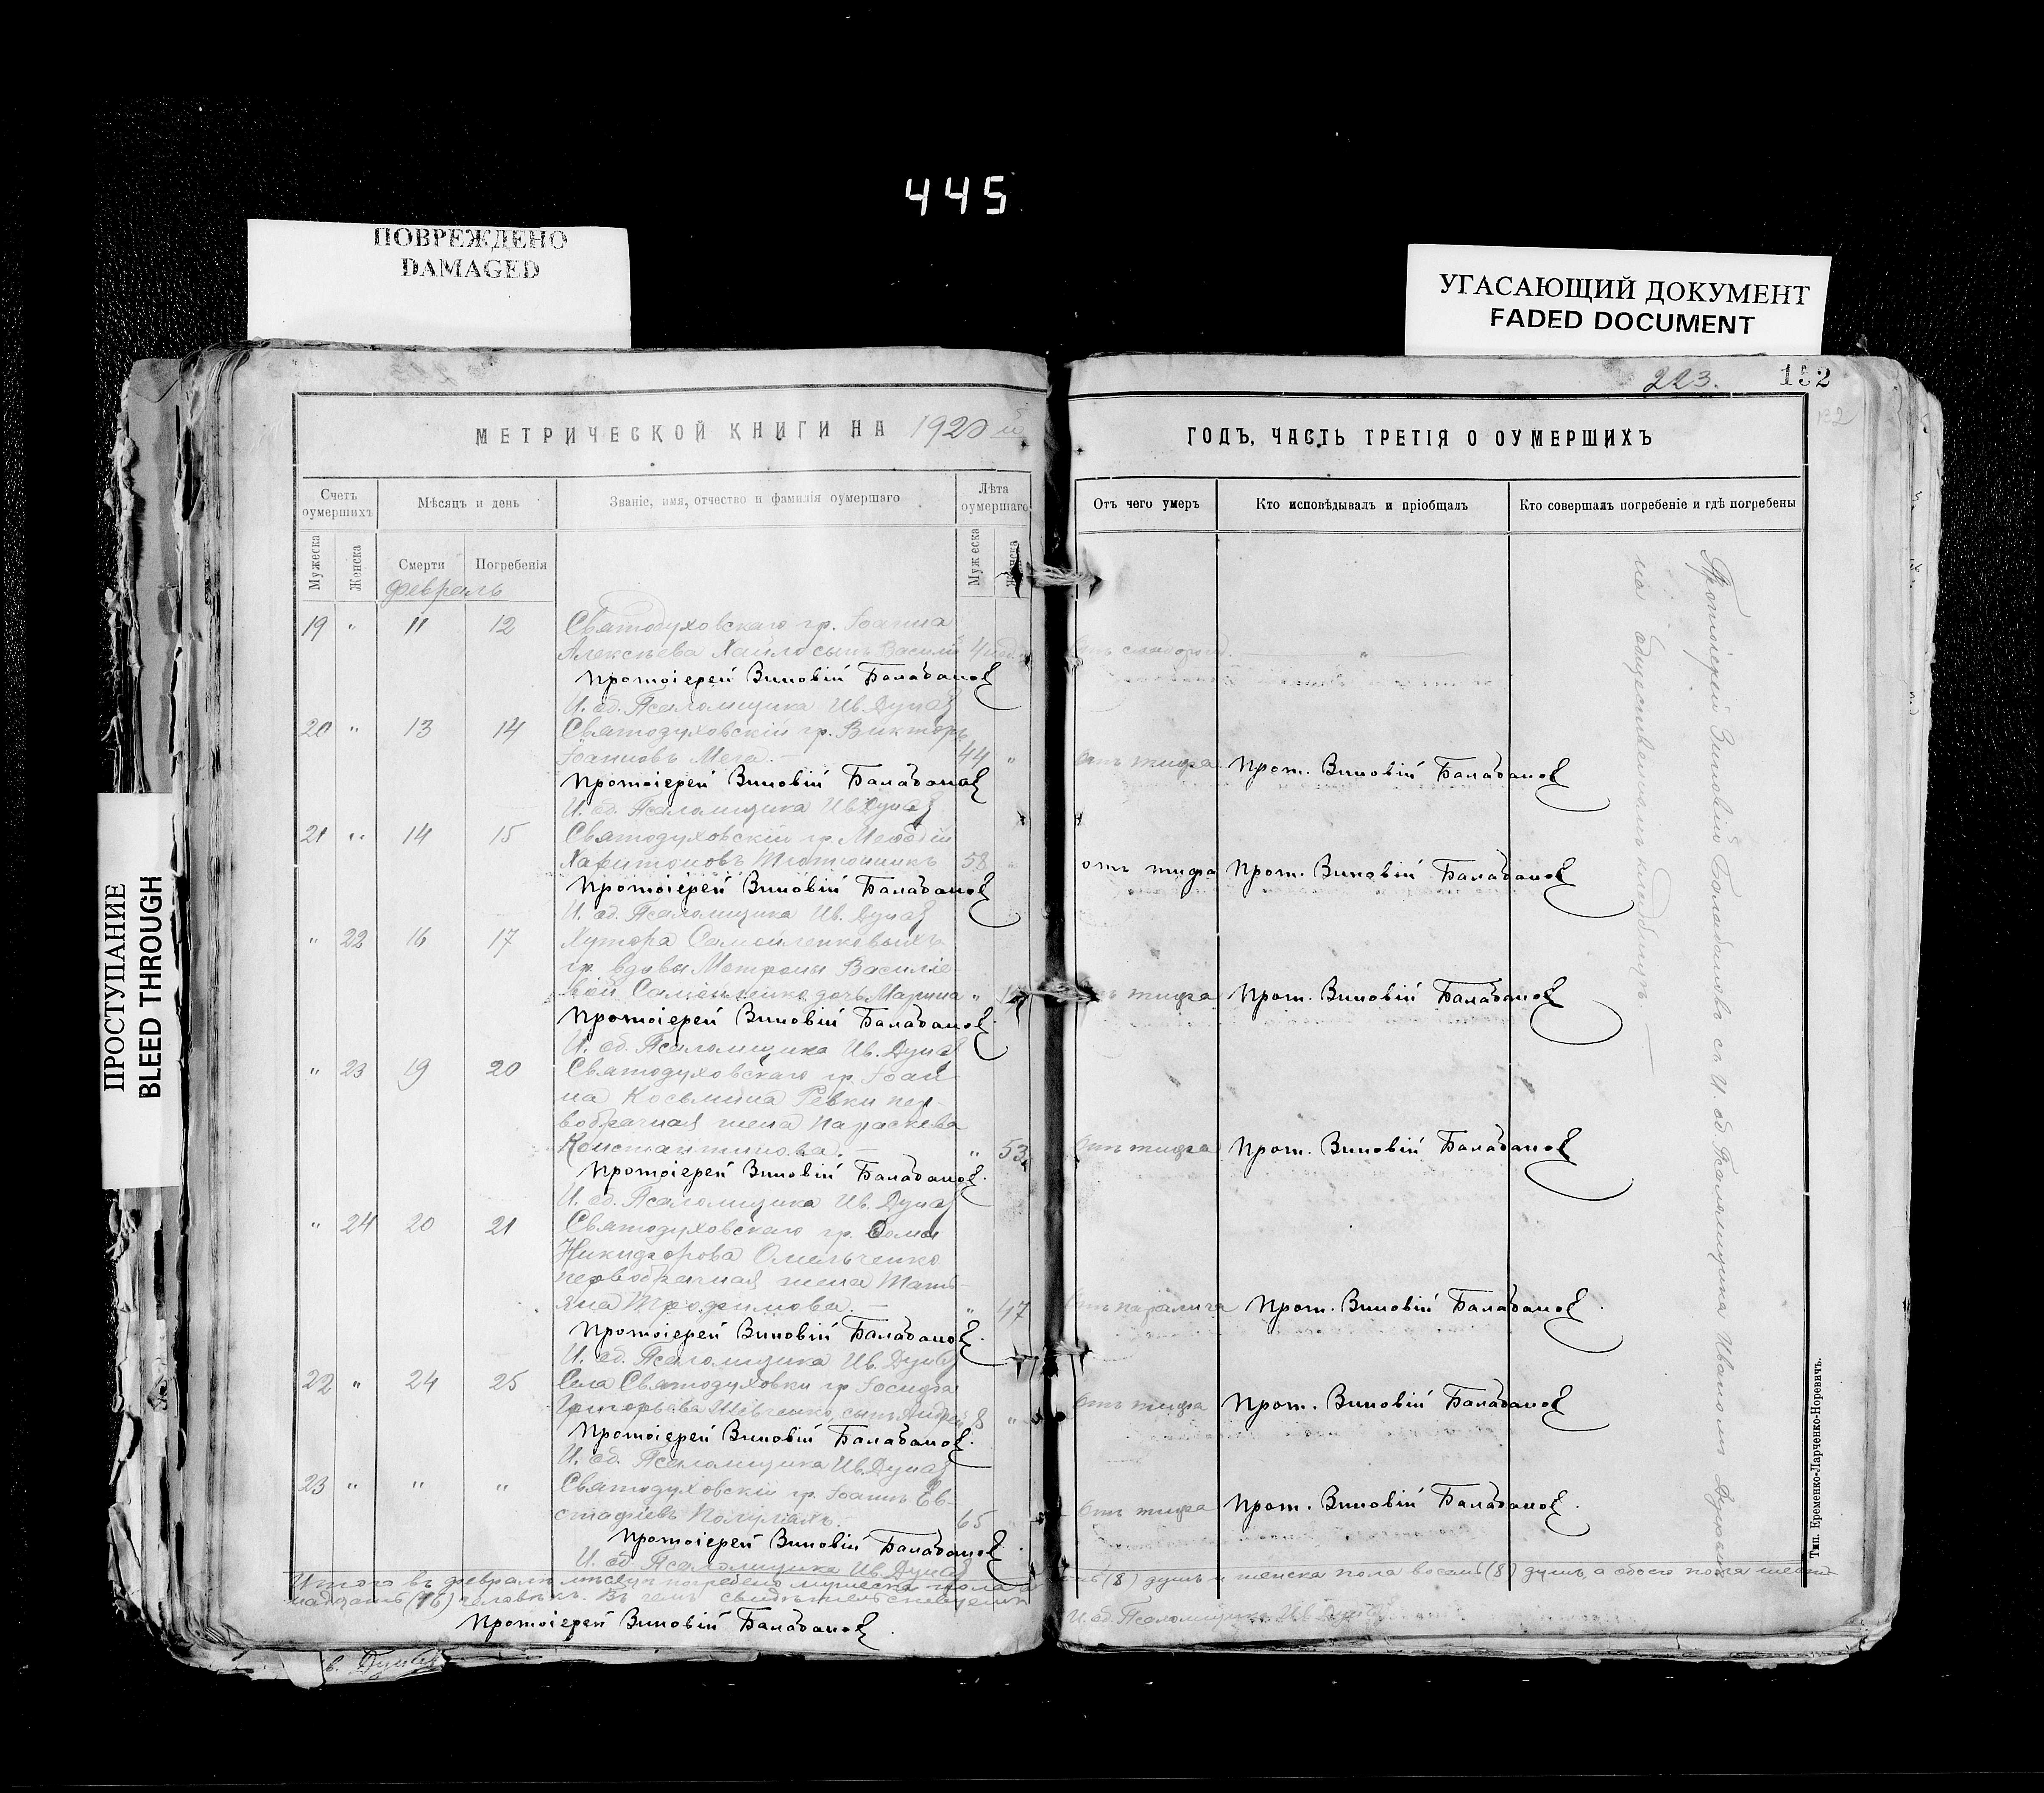 445
ПОВРЕЖДЕНО
DAMAGED
УГАСАЮЩИЙ ДОКУМЕНТ
FADED DOCUMENT
ПРОСТУПАНИЕ
BLEED THROUGH
МЕТРИЧЕСКОЙ КНИГИ НА 1920
Счетъ оумершихъ
Мѣсяцъ и день
Званіе, имя, отчество и фамилія оумершаго
Лѣта оумершаго
Мужеска
Женска
Смерти
Погребенія
Мужеска
Женска
февраль
19 " 11 12 Святодуховскаго гр. Іоанна
Алексѣева Хайло сынъ Василій 4
Протоіерей Зиновій Балабановъ
И. об. Псаломщика Ив. Дунай
20 " 13 14 Святодуховскій гр. Викторъ
Іоанновъ Мега. 44 "
Протоіерей Зиновій Балабановъ
И. об. Псаломщика Ив. Дунай
21 " 14 15 Святодуховскій гр. Меѳодій
Харитоновъ Тютюнникъ 58 "
Протоіерей Зиновій Балабановъ
И. об. Псаломщика Ив. Дунай
" 22 16 17 Хутора Самойленковыхъ
гр. вдовы Матроны Василіе-
вой Самойленко дочь Марина "
Протоіерей Зиновій Балабановъ
И. об. Псаломщика Ив. Дунай
" 23 19 20 Святодуховскаго гр. Іоан
на Косьмина Ревки пер-
вобрачная жена Параскева
Константинова. " 53
Протоіерей Зиновій Балабановъ
И. об. Псаломщика Ив. Дунай
" 24 20 21 Святодуховскаго гр. Ѳомы
Никифорова Омельченко
первобрачная жена Тать-
яна Трофимова. " 47
Протоіерей Зиновій Балабановъ
И. об. Псаломщика Ив. Дунай
22 " 24 25 Села Святодуховки гр. Іосифа
Григорьева Шевченко сынъ Андрей 8 "
Протоіерей Зиновій Балабановъ
И. об. Псаломщика Ив. Дунай
23 " " " Святодуховскій гр. Іоаннъ Ев-
стафіевъ 65
Протоіерей Зиновій Балабановъ
И. об. Псаломщика Ив. Дунай
Итого въ февралѣ мѣсяцѣ погребено мужеска пола
надцать (16) человѣкъ. Въ чемъ свидѣтельствуемъ
Протоіерей Зиновій Балабановъ
223.
152
ГОДЪ, ЧАСТЬ ТРЕТІЯ О ОУМЕРШИХЪ
Отъ чего умеръ
Кто исповѣдывалъ и пріобщалъ
Кто совершалъ погребеніе и гдѣ погребены
Отъ "
Отъ тифа Прот. Зиновій Балабановъ
отъ тифа Прот. Зиновій Балабановъ
Отъ тифа Прот. Зиновій Балабановъ
Отъ тифа Прот. Зиновій Балабановъ
Отъ паралича Прот. Зиновій Балабановъ
Отъ тифа Прот. Зиновій Балабановъ
Отъ тифа Прот. Зиновій Балабановъ
Протоіерей Зиновій Балабановъ съ И. об. Псаломщика Иваномъ Дунаемъ
на общественномъ кладбищѣ.
(8) душъ и женска пола восемь (8) душъ, а обоего пола шест-
И. об. Псаломщика Ив. Дунай
Тип. Еременко-Ларченко-Норевичъ.